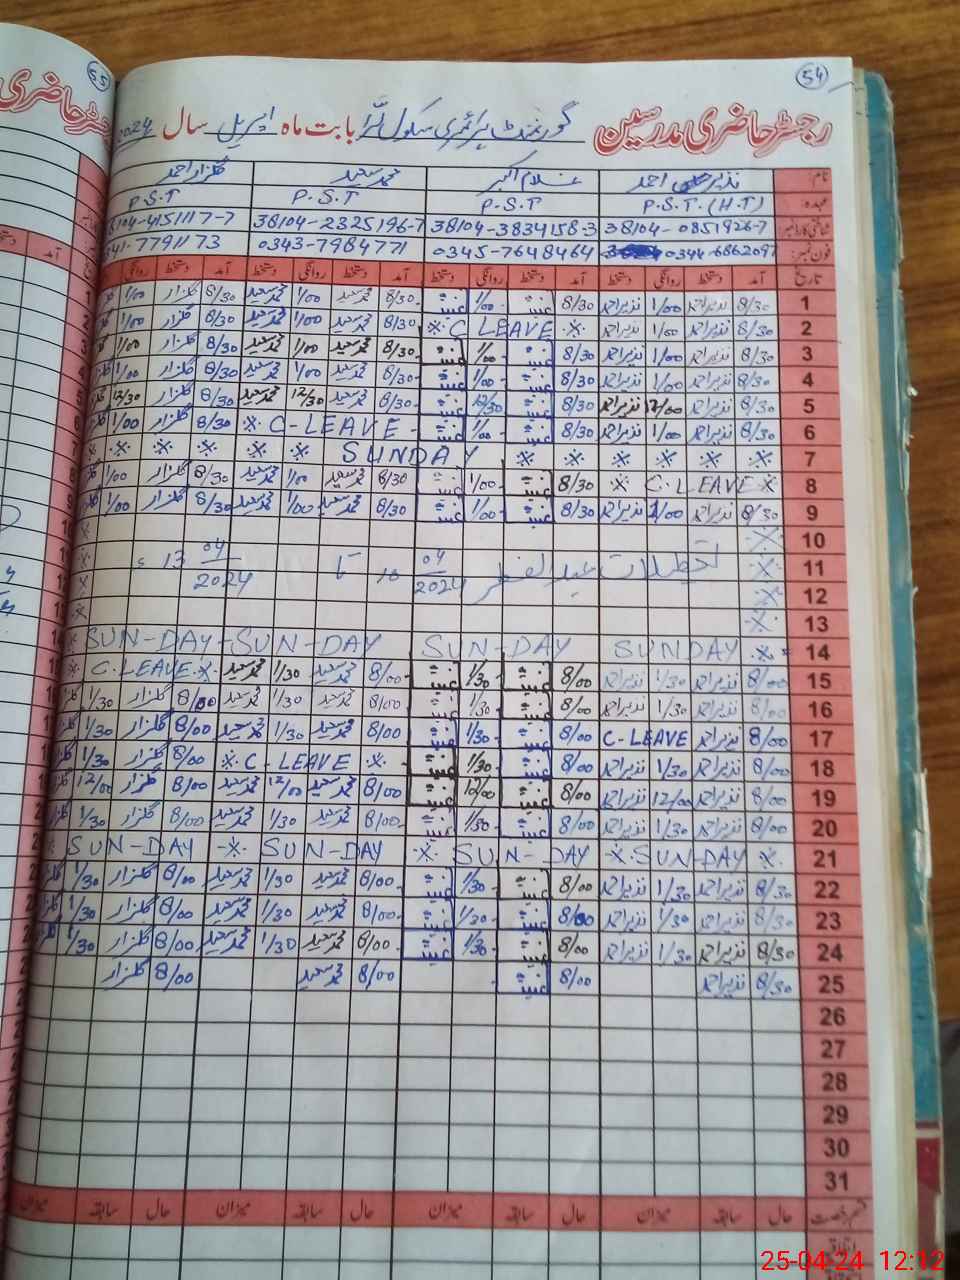 54
رجسٹر حاضری مدرسین گورنمنٹ پرائمری سکول بابت ماہ اپریل سال 2024
نام نذیر احمد غلام اکبر محمد سعید گلزار احمد
عہدہ P.S.T.(H.T) P.S.T P.S.T P.S.T
شناختی کارڈ نمبر 38104-0851926-7 38104-3834158-3 38104-2325196-7 38104-4151117-7
فون نمبر 0344-6862097 0345-7648464 0343-7984771 0341-7791173
تاریخ آمد دستخط روانگی دستخط آمد دستخط روانگی دستخط آمد دستخط روانگی دستخط آمد دستخط روانگی
1 8/30 نذیر احمد 1/00 نذیر احمد 8/30 1/00 8/30 محمد سعید 1/00 محمد سعید 8/30 گلزار 1/00
2 8/30 نذیر احمد 1/00 نذیر احمد ※ C LEAVE ※ 8/30 محمد سعید 1/00 محمد سعید 8/30 گلزار 1/00
3 8/30 نذیر احمد 1/00 نذیر احمد 8/30 1/00 8/30 محمد سعید 1/00 محمد سعید 8/30 گلزار 1/00
4 8/30 نذیر احمد 1/00 نذیر احمد 8/30 1/00 8/30 محمد سعید 1/00 محمد سعید 8/30 گلزار 1/00
5 8/30 نذیر احمد 12/00 نذیر احمد 8/30 12/30 8/30 محمد سعید 12/30 محمد سعید 8/30 گلزار 12/30
6 8/30 نذیر احمد 1/00 نذیر احمد 8/30 1/00 ※ C-LEAVE - 8/30 گلزار 1/00
7 ※ ※ ※ ※ ※ ※ SUNDAY ※ ※ ※ ※ ※
8 ※ C.LEAVE ※ 8/30 1/00 8/30 محمد سعید 1/00 محمد سعید 8/30 گلزار 1/00
9 8/30 نذیر احمد 1/00 نذیر احمد 8/30 1/00 8/30 محمد سعید 1/00 محمد سعید 8/30 گلزار 1/00
10 ※
11 ※ تعطیلات عید الفطر 10 04/2024 تا 13 04/2024
12 ※
13 ※
14 ※ SUNDAY SUN-DAY SUN-DAY-SUN-DAY
15 8/00 نذیر احمد 1/30 نذیر احمد 8/00 1/30 8/00 محمد سعید 1/30 محمد سعید ※ C.LEAVE ※
16 8/00 نذیر احمد 1/30 نذیر احمد 8/00 1/30 8/00 محمد سعید 1/30 محمد سعید 8/00 گلزار 1/30
17 8/00 نذیر احمد C-LEAVE 8/00 1/30 8/00 محمد سعید 1/30 محمد سعید 8/00 گلزار 1/30
18 8/00 نذیر احمد 1/30 نذیر احمد 8/00 1/30 ※ C-LEAVE ※ 8/00 گلزار 1/30
19 8/00 نذیر احمد 12/00 نذیر احمد 8/00 12/00 8/00 محمد سعید 12/00 محمد سعید 8/00 گلزار 12/00
20 8/00 نذیر احمد 1/30 نذیر احمد 8/00 1/30 8/00 محمد سعید 1/30 محمد سعید 8/00 گلزار 1/30
21 ※ SUN-DAY ※ SUN-DAY ※ SUN-DAY ※ SUN-DAY
22 8/30 نذیر احمد 1/30 نذیر احمد 8/00 1/30 8/00 محمد سعید 1/30 محمد سعید 8/00 گلزار 1/30
23 8/30 نذیر احمد 1/30 نذیر احمد 8/00 1/30 8/00 محمد سعید 1/30 محمد سعید 8/00 گلزار 1/30
24 8/30 نذیر احمد 1/30 نذیر احمد 8/00 1/30 8/00 محمد سعید 1/30 محمد سعید 8/00 گلزار 1/30
25 8/30 نذیر احمد 8/00 8/00 محمد سعید 8/00 گلزار
26
27
28
29
30
31
قسم رخصت حال سابقہ میزان حال سابقہ میزان حال سابقہ میزان حال سابقہ میزان
اتفاقیہ
55
25-04-24 12:12